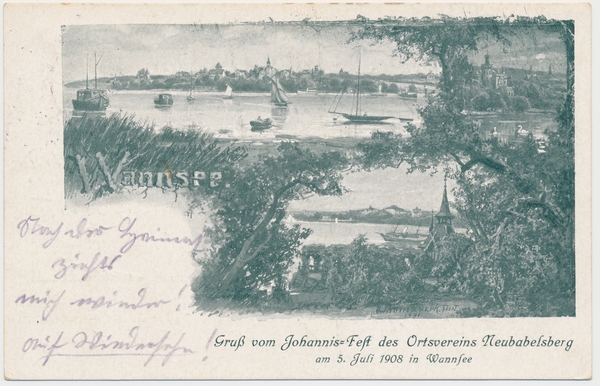 Wannsee.
Nach der Heimat
ziehts
mich wieder!
auf Wiedersehn!
Gruß vom Johannis=Fest des Ortsvereins Neubabelsberg
am 5. Juli 1908 in Wannsee